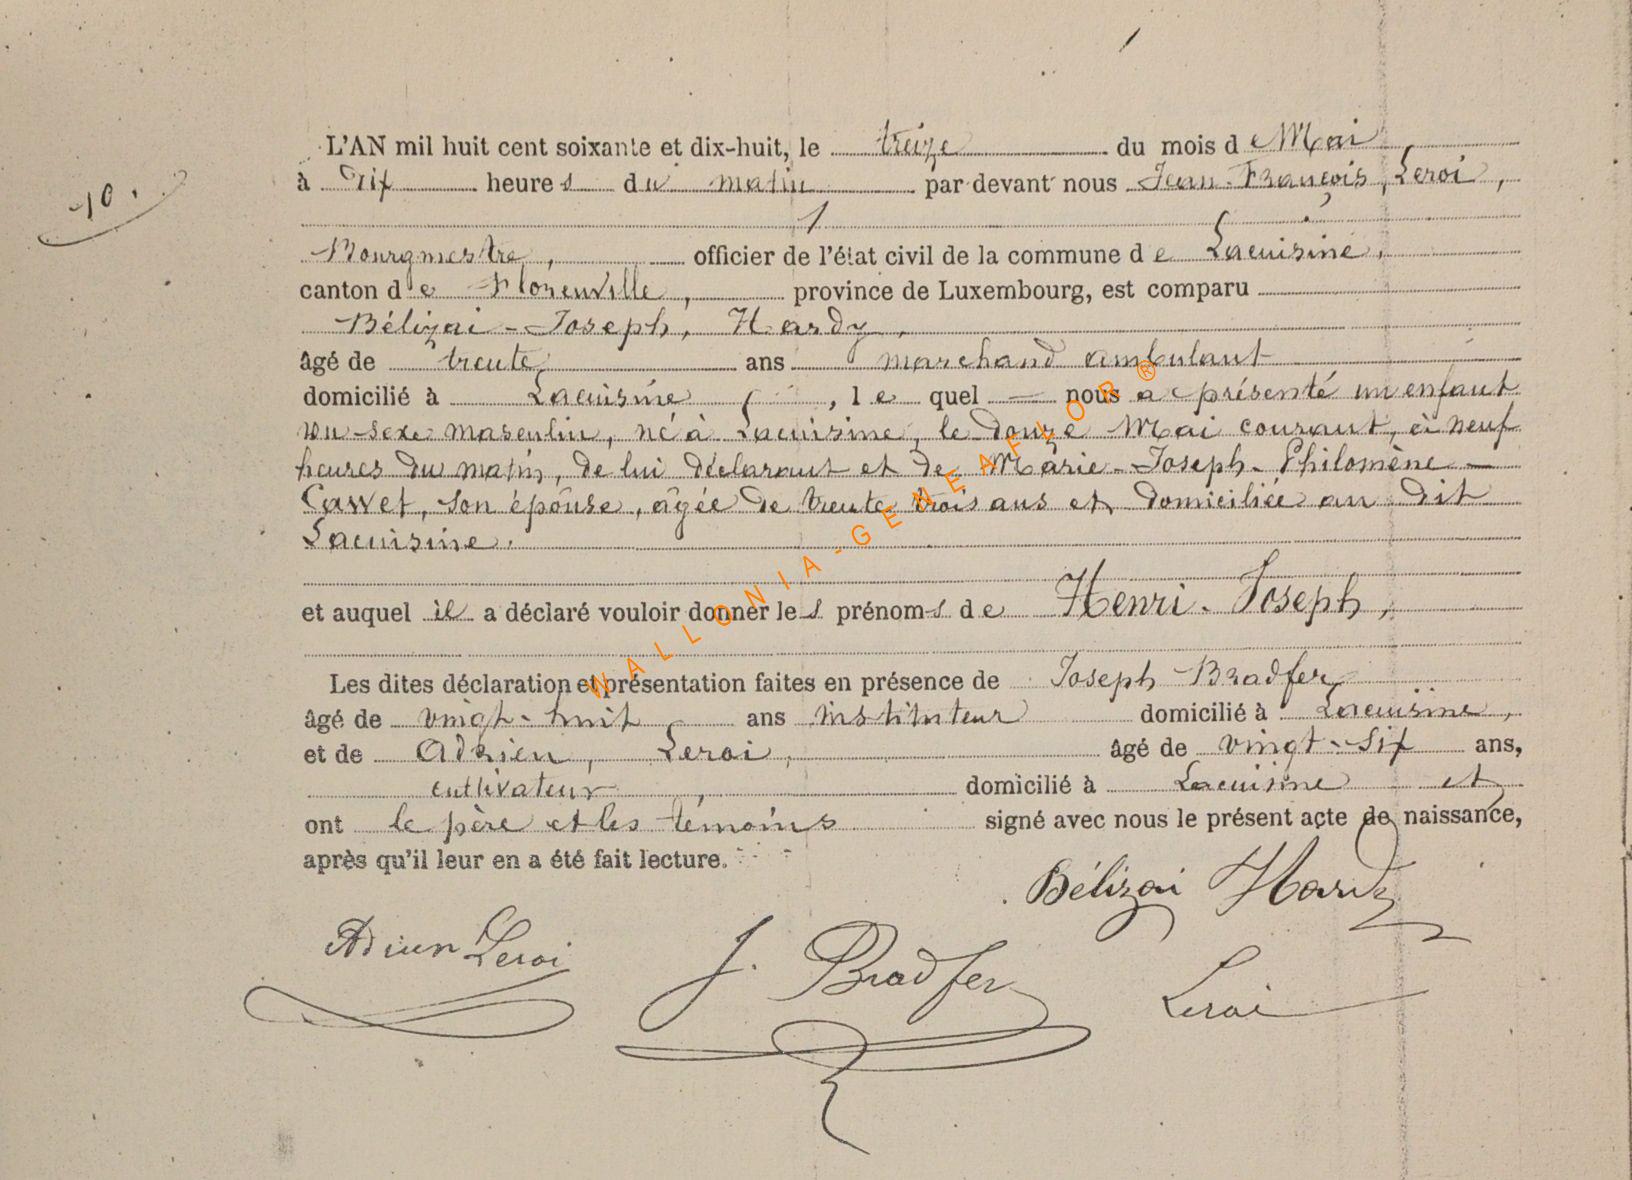 10.
L'AN mil huit cent soixante et dix-huit, le treize du mois de Mai
à dix heures du matin par devant nous Jean-François, Leroi,
Bourgmestre, officier de l'état civil de la commune de Lacuisine,
canton de Florenville, province de Luxembourg, est comparu
Bélizai-Joseph, Hardy,
âgé de trente ans marchand ambulant
domicilié à Lacuisine, lequel nous a présenté un enfant
du sexe masculin, né à Lacuisine, le douze Mai courant, à neuf
heures du matin, de lui déclarant et de Marie-Joseph-Philomène
Cawet, son épouse, âgée de trente trois ans et domiciliée au dit
Lacuisine.
et auquel il a déclaré vouloir donner les prénoms de Henri-Joseph,
Les dites déclaration et présentation faites en présence de Joseph Bradfer
âgé de vingt-huit ans instituteur domicilié à Lacuisine,
et de Adrien, Leroi, âgé de vingt-six ans,
cultivateur, domicilié à Lacuisine et
ont le père et les témoins signé avec nous le présent acte de naissance,
après qu'il leur en a été fait lecture.
Bélizai Hardy
Adrien Leroi J. Bradfer Leroi
WALLONIA-GENEAFLOR®